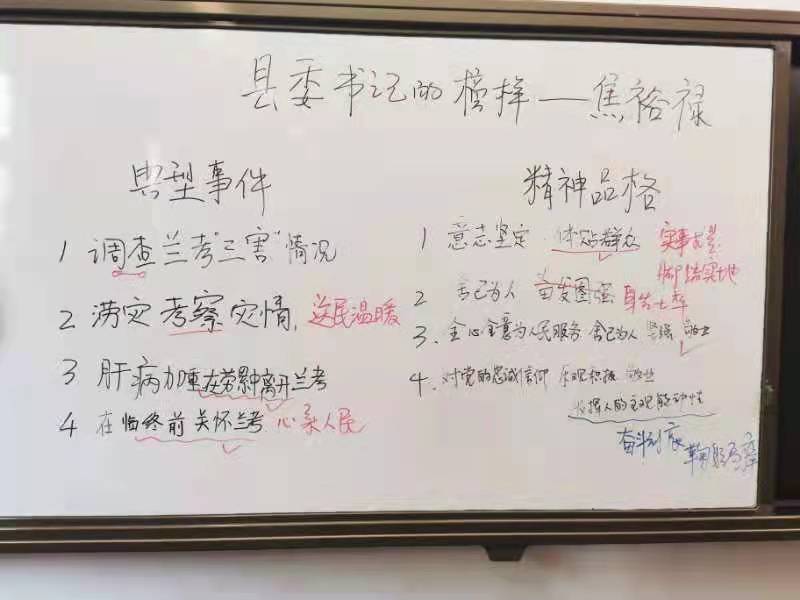 县委书记的榜样——焦裕禄
典型事件
1 调查兰考"三害"情况
2 涝灾考察灾情,送民温暖
3 肝病加重在劳累中离开兰考
4 在临终前关怀兰考 心系人民
精神品格
1 意志坚定 体贴群众 实事求是
脚踏实地
2 舍己为人 奋发图强 身先士卒
3、全心全意为人民服务 舍己为人 坚强 敬业
4、对党的忠诚信仰 乐观积极 敬业
发挥人的主观能动性
奋斗到底
鞠躬尽瘁